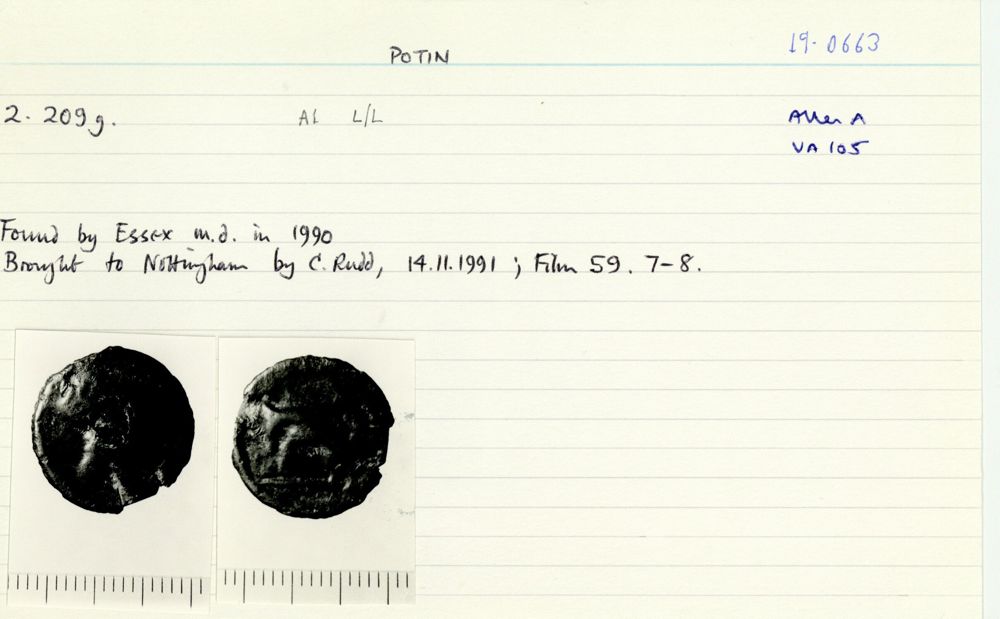 POTIN
19-0663
2.209g.
A1 L/L
Allen A
VA 105
Found by Essex m.d. in 1990
Brought to Nottingham by C. Rudd, 14.11.1991 ; Film 59. 7-8.